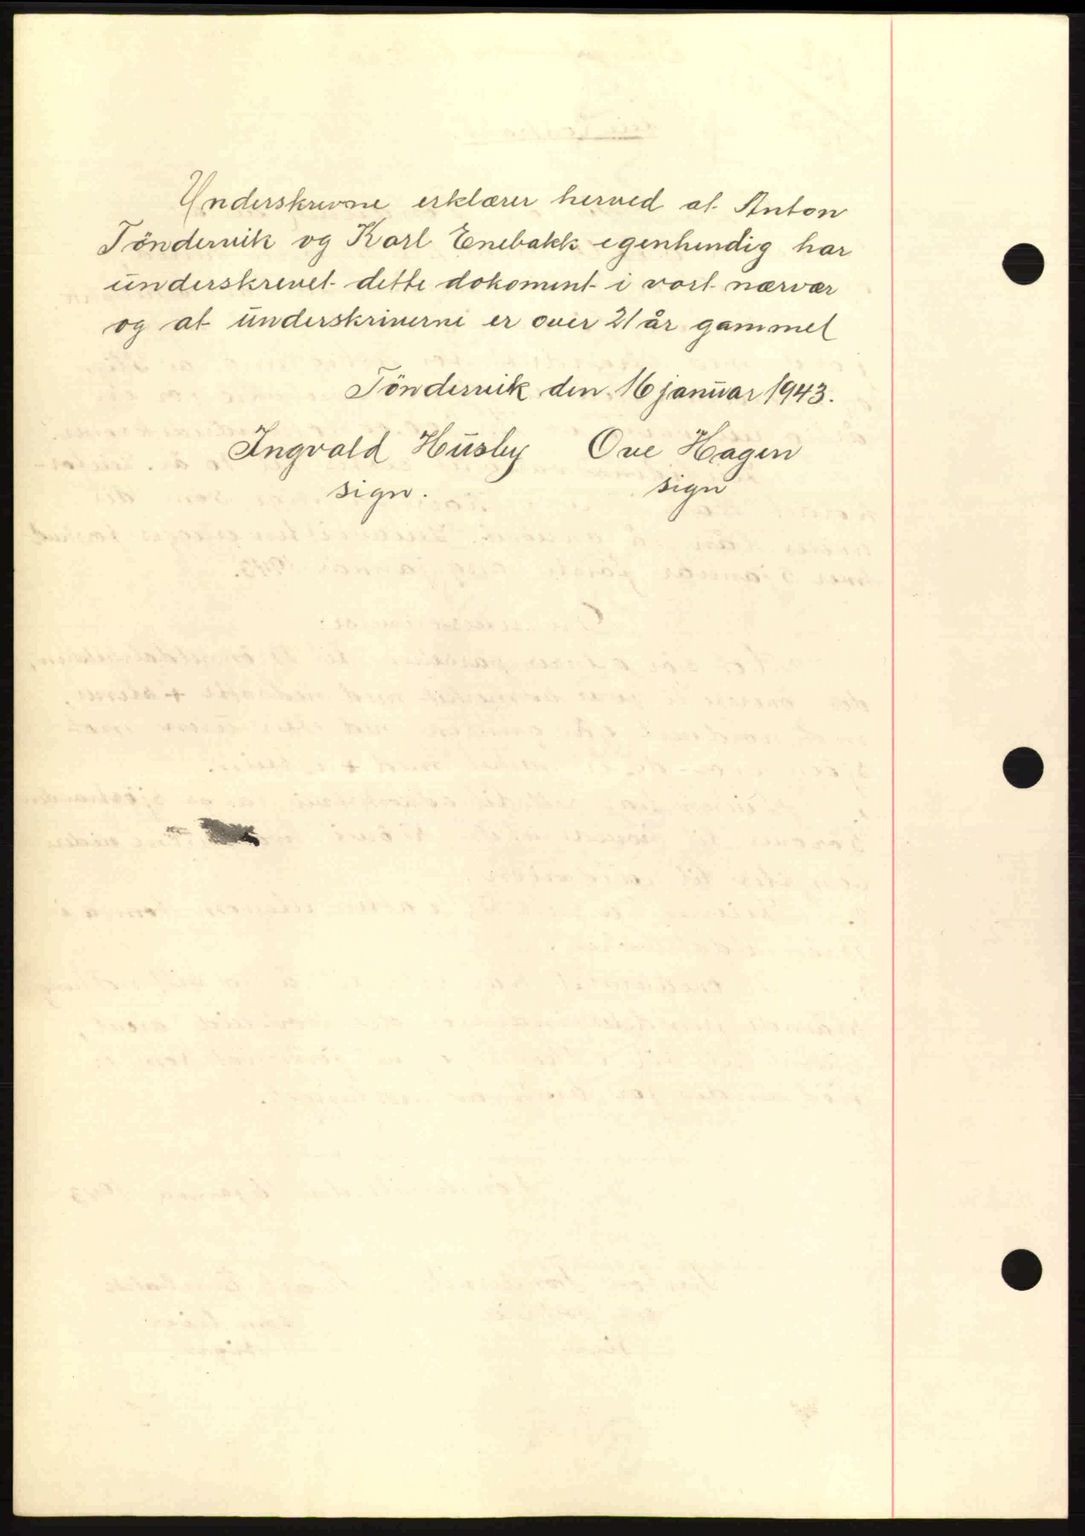 Underskrevne erklærer herved at Anton
Töndervik og Karl Enebakk egenhendig har
underskrevet dette dokoment i vort nærvær
og at underskriverne er over 21 år gammel
Töndervik den 16 januar 1943.
Ingvald Husby Ove Hagen
sign. sign